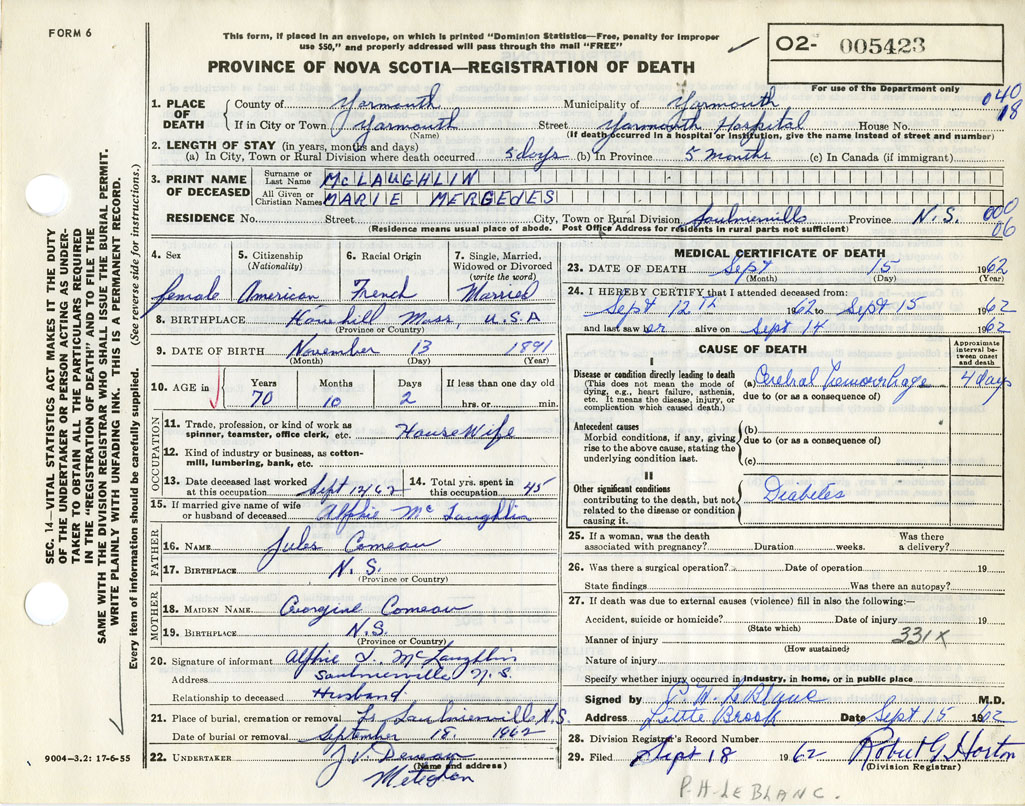 FORM 6
This form, if placed in an envelope, on which is printed "Dominion Statistics—Free, penalty for improper
use $50," and properly addressed will pass through the mail "FREE"
02- 005423
PROVINCE OF NOVA SCOTIA—REGISTRATION OF DEATH
For use of the Department only
040
18
1. PLACE OF DEATH { County of Yarmouth Municipality of Yarmouth
If in City or Town Yarmouth Street Yarmouth Hospital House No.
(Name) (If death occurred in a hospital or institution, give the name instead of street and number)
2. LENGTH OF STAY (in years, months and days)
(a) In City, Town or Rural Division where death occurred 5 days (b) In Province 5 months (c) In Canada (if immigrant)
3. PRINT NAME OF DECEASED { Surname or Last Name McLAUGHLIN
All Given or Christian Names MARIE MERGEDES
RESIDENCE No. Street City, Town or Rural Division Saulnierville Province N.S. 000
06
(Residence means usual place of abode. Post Office Address for residents in rural parts not sufficient)
4. Sex 5. Citizenship (Nationality) 6. Racial Origin 7. Single, Married, Widowed or Divorced (write the word)
female American French Married
8. BIRTHPLACE Haverhill Mass, U.S.A
(Province or Country)
9. DATE OF BIRTH November 13 1891
(Month) (Day) (Year)
10. AGE in { Years Months Days If less than one day old
70 10 2 hrs. or min.
OCCUPATION
11. Trade, profession, or kind of work as spinner, teamster, office clerk, etc. House Wife
12. Kind of industry or business, as cotton-mill, lumbering, bank, etc.
13. Date deceased last worked at this occupation Sept 1962 14. Total yrs. spent in this occupation 45
15. If married give name of wife or husband of deceased Alphie McLaughlin
FATHER
16. NAME Jules Comeau
17. BIRTHPLACE N.S.
(Province or Country)
MOTHER
18. MAIDEN NAME Georgine Comeau
19. BIRTHPLACE N.S.
(Province or Country)
20. Signature of informant Alphie J. McLaughlin
Address Saulnierville N.S.
Relationship to deceased Husband
21. Place of burial, cremation or removal Saulnierville N.S.
Date of burial or removal September 18, 1962
22. UNDERTAKER J.V.
(Name and address)
Meteghan
MEDICAL CERTIFICATE OF DEATH
23. DATE OF DEATH Sept 15 1962
(Month) (Day) (Year)
24. I HEREBY CERTIFY that I attended deceased from:
Sept 12th 1962 to Sept 15 1962
and last saw her alive on Sept 14 1962
CAUSE OF DEATH
Approximate interval between onset and death
I
Disease or condition directly leading to death (a) Cerebral hemorrhage 4 days
(This does not mean the mode of dying, e.g., heart failure, asthenia, etc. It means the disease, injury, or complication which caused death.)
due to (or as a consequence of)
Antecedent causes
Morbid conditions, if any, giving rise to the above cause, stating the underlying condition last.
(b)
due to (or as a consequence of)
(c)
II
Other significant conditions
contributing to the death, but not related to the disease or condition causing it.
Diabetes
25. If a woman, was the death associated with pregnancy? Duration weeks. Was there a delivery?
26. Was there a surgical operation? Date of operation 19
State findings Was there an autopsy?
27. If death was due to external causes (violence) fill in also the following:—
Accident, suicide or homicide? Date of injury 19
(State which)
Manner of injury 331X
(How sustained)
Nature of injury
Specify whether injury occurred in industry, in home, or in public place
Signed by P.H. LeBlanc M.D.
Address Little Brook Date Sept 15 1962
28. Division Registrar's Record Number
29. Filed Sept 18 1962 Robert G Horton
(Division Registrar)
P.H. LEBLANC.
SEC. 14—VITAL STATISTICS ACT MAKES IT THE DUTY
OF THE UNDERTAKER OR PERSON ACTING AS UNDER-
TAKER TO OBTAIN ALL THE PARTICULARS REQUIRED
IN THE "REGISTRATION OF DEATH" AND TO FILE THE
SAME WITH THE DIVISION REGISTRAR WHO SHALL ISSUE THE BURIAL PERMIT.
WRITE PLAINLY WITH UNFADING INK. THIS IS A PERMANENT RECORD.
Every item of information should be carefully supplied. (See reverse side for instructions.)
9004-3.2: 17-6-55